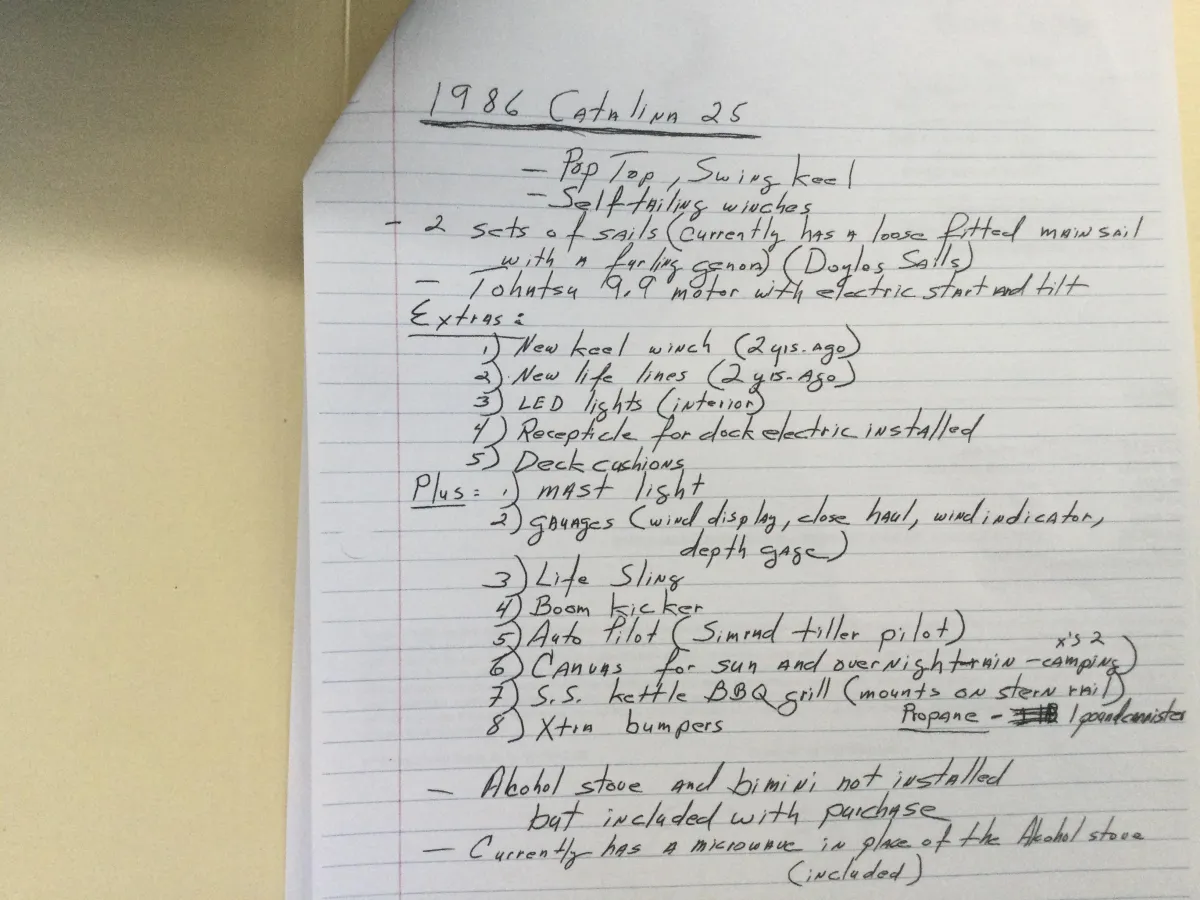 1986 Catalina 25
- Pop Top, Swing keel
- Self tailing winches
- 2 sets of sails (currently has a loose fitted mainsail
with a furling genoa) (Doylos Sails)
- Tohatsu 9.9 motor with electric start and tilt
Extras:
1) New keel winch (2 yrs. ago)
2) New life lines (2 yrs. ago)
3) LED lights (interior)
4) Recepticle for dock electric installed
5) Deck cushions
Plus: 1) mast light
2) gauages (wind display, close haul, wind indicator,
depth gage)
3) Life Sling
4) Boom kicker
5) Auto Pilot (Simrad tiller pilot)
x's 2
6) Canvas for sun and overnight rain - camping)
7) S.S. kettle BBQ grill (mounts on stern rail)
Propane - 1 pound cannister
8) Xtra bumpers
- Alcohol stove and bimini not installed
but included with purchase
- Currently has a microwave in place of the Alcohol stove
(included)